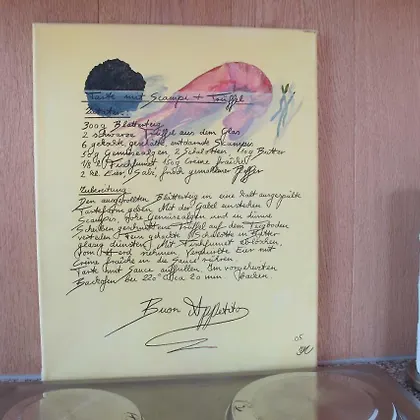 Tarte mit Scampi + Trüffel
Zutaten:
300g Blätterteig
2 schwarze Trüffel aus dem Glas
6 gekochte geschälte, entdarmte Scampi
50g Gemüsealgen, 2 Schalotten, 10g Butter
1/8 l Fischfumet 150g Creme fraîche
2 kl. Eier, Salz, frisch gemahlener Pfeffer
Zubereitung
Den ausgerollten Blätterteig in eine kalt ausgespülte
Tarteform geben. Mit der Gabel einstechen
Scampi, rohe Gemüsealgen und in dünne
Scheiben geschnittene Trüffel auf dem Teigboden
verteilen. Fein gehackte Schalotte in Butter
glasig dünsten, Mit Fischfumet ablöschen.
Vom Herd nehmen. Verquirlte Eier mit
Creme fraîche in die Sauce rühren
Tarte mit Sauce auffüllen. Im vorgeheizten
Backofen bei 220° circa 20 min backen.
Buon Appetito
05